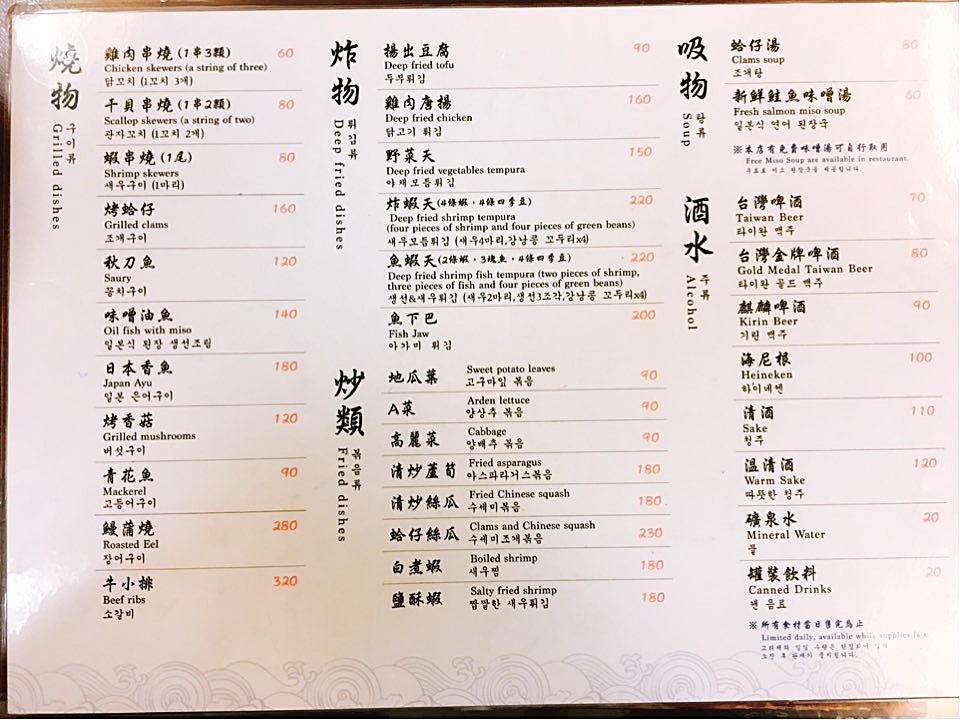 燒物
구이류
Grilled dishes
雞肉串燒 (1串3顆) 60
Chicken skewers (a string of three)
닭꼬치 (1꼬치 3개)
干貝串燒 (1串2顆) 80
Scallop skewers (a string of two)
관자꼬치 (1꼬치 2개)
蝦串燒 (1尾) 80
Shrimp skewers
새우구이 (1마리)
烤蛤仔 160
Grilled clams
조개구이
秋刀魚 120
Saury
꽁치구이
味噌油魚 140
Oil fish with miso
일본식 된장 생선조림
日本香魚 180
Japan Ayu
일본 은어구이
烤香菇 120
Grilled mushrooms
버섯구이
青花魚 90
Mackerel
고등어구이
鰻蒲燒 280
Roasted Eel
장어구이
牛小排 320
Beef ribs
소갈비
炸物
튀김류
Deep fried dishes
揚出豆腐 90
Deep fried tofu
두부튀김
雞肉唐揚 160
Deep fried chicken
닭고기 튀김
野菜天 150
Deep fried vegetables tempura
야채모듬튀김
炸蝦天 (4條蝦，4條四季豆) 220
Deep fried shrimp tempura
(four pieces of shrimp and four pieces of green beans)
새우모듬튀김 (새우4마리,강낭콩 꼬두리x4)
魚蝦天 (2條蝦，3塊魚，4條四季豆) 220
Deep fried shrimp fish tempura (two pieces of shrimp,
three pieces of fish and four pieces of green beans)
생선&새우튀김 (새우2마리,생선3조각,강낭콩 꼬두리x4)
魚下巴 200
Fish Jaw
아가미 튀김
炒類
볶음류
Fried dishes
地瓜葉 Sweet potato leaves 90
고구마잎 볶음
A菜 Arden lettuce 90
양상추 볶음
高麗菜 Cabbage 90
양배추 볶음
清炒蘆筍 Fried asparagus 180
아스파라거스볶음
清炒絲瓜 Fried Chinese squash 180
수세미볶음
蛤仔絲瓜 Clams and Chinese squash 230
수세미조개볶음
白煮蝦 Boiled shrimp 180
새우찜
鹽酥蝦 Salty fried shrimp 180
짭짤한 새우튀김
吸物
탕류
Soup
蛤仔湯 80
Clams soup
조개탕
新鮮鮭魚味噌湯 60
Fresh salmon miso soup
일본식 연어 된장국
※本店有免費味噌湯可自行取用
Free Miso Soup are available in restaurant.
무료로 미소 된장국을 제공합니다.
酒水
주류
Alcohol
台灣啤酒 70
Taiwan Beer
타이완 맥주
台灣金牌啤酒 80
Gold Medal Taiwan Beer
타이완 골드 맥주
麒麟啤酒 90
Kirin Beer
기린 맥주
海尼根 100
Heineken
하이네켄
清酒 110
Sake
청주
溫清酒 120
Warm Sake
따뜻한 청주
礦泉水 20
Mineral Water
물
罐裝飲料 20
Canned Drinks
캔 음료
※所有食材當日售完為止
Limited daily, available while supplies last.